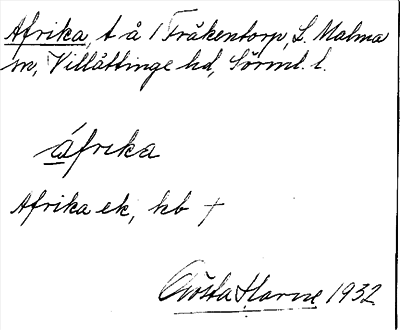 Afrika, t å 1 Fråkentorp, L. Malma
sn, Villåttinge hd, Sörml. l.
áfrika
Afrika ek, kb †
Gösta Harne 1932